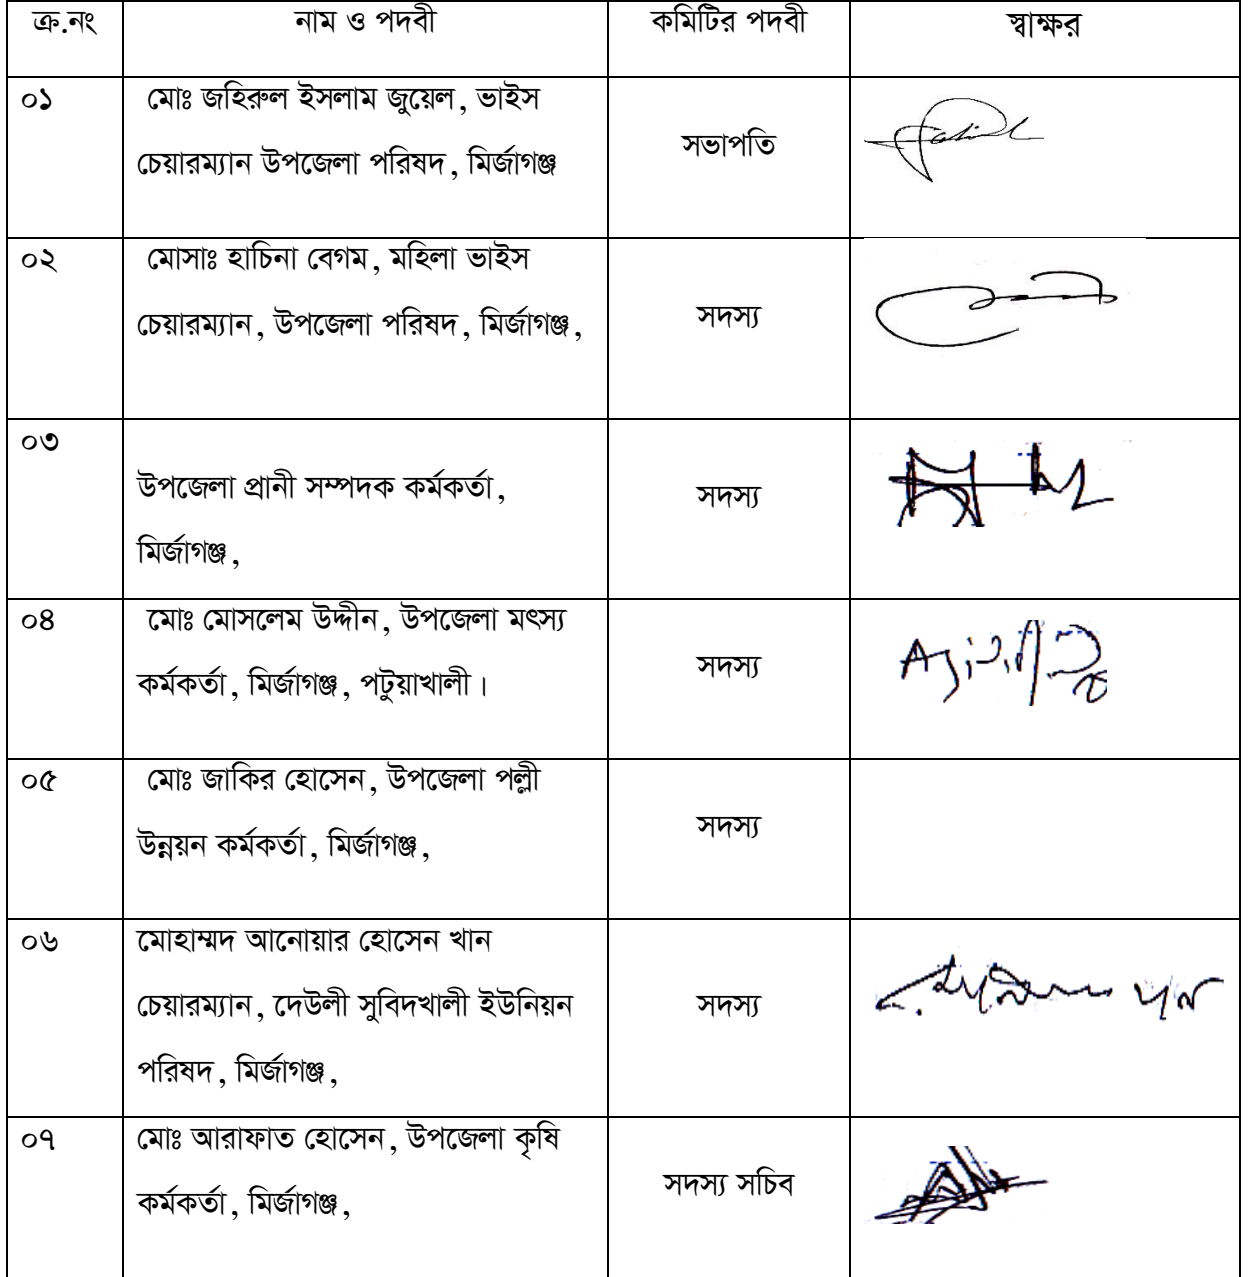 ক্র.নং নাম ও পদবী কমিটির পদবী স্বাক্ষর
০১ মোঃ জহিরুল ইসলাম জুয়েল, ভাইস
চেয়ারম্যান উপজেলা পরিষদ, মির্জাগঞ্জ সভাপতি
০২ মোসাঃ হাচিনা বেগম, মহিলা ভাইস
চেয়ারম্যান, উপজেলা পরিষদ, মির্জাগঞ্জ, সদস্য
০৩
উপজেলা প্রানী সম্পদক কর্মকর্তা, সদস্য
মির্জাগঞ্জ,
০৪ মোঃ মোসলেম উদ্দীন, উপজেলা মৎস্য
কর্মকর্তা, মির্জাগঞ্জ, পটুয়াখালী। সদস্য
০৫ মোঃ জাকির হোসেন, উপজেলা পল্লী
উন্নয়ন কর্মকর্তা, মির্জাগঞ্জ, সদস্য
০৬ মোহাম্মদ আনোয়ার হোসেন খান
চেয়ারম্যান, দেউলী সুবিদখালী ইউনিয়ন সদস্য
পরিষদ, মির্জাগঞ্জ,
০৭ মোঃ আরাফাত হোসেন, উপজেলা কৃষি
কর্মকর্তা, মির্জাগঞ্জ, সদস্য সচিব